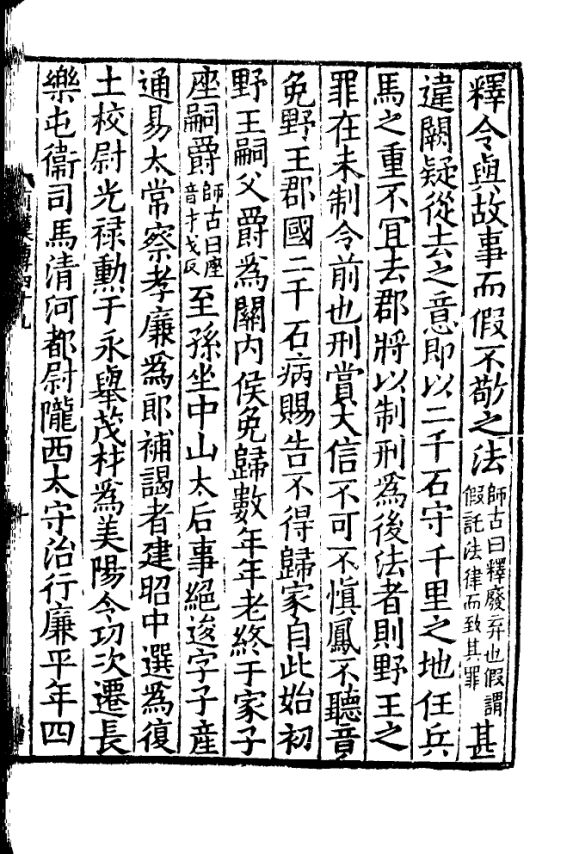 釋令與故事而假不敬之法師古曰釋廢弃也假謂假託法律而致其罪甚
違闕疑從去之意即以二千石守千里之地任兵
馬之重不宜去郡將以制刑為後法者則野王之
罪在未制令前也刑賞大信不可不慎鳳不聽竟
免野王郡國二千石病賜告不得歸家自此始初
野王嗣父爵為關内侯免歸數年年老終于家子
座嗣爵師古曰座音才戈反至孫坐中山太后事絕逡字子產
通易太常察孝廉為郎補謁者建昭中選為復
土校尉光禄勲于永舉茂材為美陽令功次遷長
樂屯衞司馬清河都尉隴西太守治行廉平年四